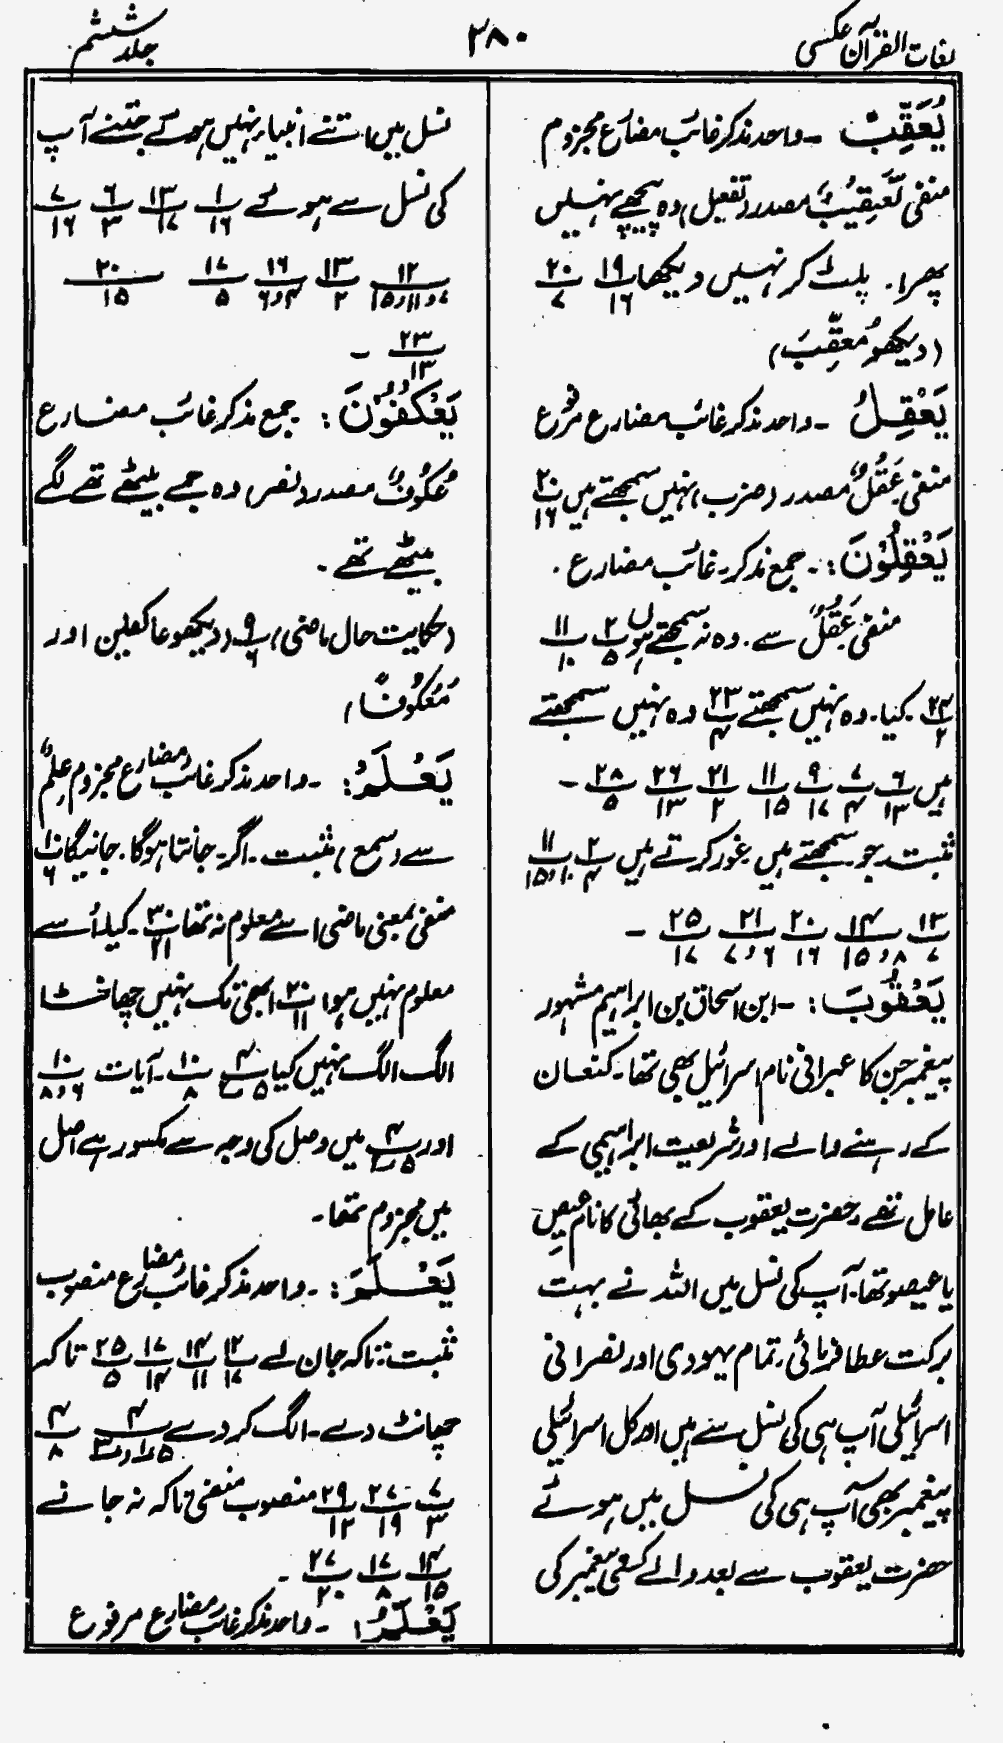 لغات القرآن عکسی
۲۸۰
جلد ششم
یُعَقِّبْ ۔ واحد مذکر غائب مضارع مجزوم
منفی تَعْقِیْبٌ مصدر (تفعیل) وہ پیچھے نہیں
پھرا۔ پلٹ کر نہیں دیکھا ۱۹/۱۶ ۲۰/۷
(دیکھو مُعَقِّبَ)
یَعْقِلُ ۔ واحد مذکر غائب مضارع مرفوع
منفی عَقْلٌ مصدر (ضرب) نہیں سمجھتے ہیں ۲۰/۱۶
یَعْقِلُوْنَ :۔ جمع مذکر۔ غائب مضارع ۔
منفی عَقْلٌ سے ۔ وہ نہ سمجھتے ہوں ۲/۵ ۱۱/۱۰
۲۳/۲ کیا۔ وہ نہیں سمجھتے ۲۳/۴ وہ نہیں سمجھتے
ہیں ۶/۱۳ ۷/۴ ۹/۱۷ ۱۱/۱۵ ۲۱/۲ ۲۶/۱۳ ۲۸/۵ ۔
مثبت۔ جو سمجھتے ہیں غور کرتے ہیں ۲/۴ ۱۱/۱۰و۱۵
۱۳/۷ ۱۴/۸و۱۵ ۲۰/۱۶ ۲۱/۶و۷ ۲۵/۱۷ ۔
یَعْقُوْبَ : ۔ ابن اسحاق بن ابراہیم مشہور
پیغمبر جن کا عبرانی نام اسرائیل بھی تھا۔ کنعان
کے رہنے والے اور شریعت ابراہیمی کے
عامل تھے۔ حضرت یعقوب کے بھائی کا نام عیص
یا عیصو تھا۔ آپ کی نسل میں اللہ نے بہت
برکت عطا فرمائی۔ تمام یہودی اور نصرانی
اسرائیلی آپ ہی کی نسل سے ہیں اور کل اسرائیلی
پیغمبر بھی آپ ہی کی نسل میں ہوئے
حضرت یعقوب سے بعد والے کسی پیغمبر کی
نسل میں اتنے انبیاء نہیں ہوئے جتنے آپ
کی نسل سے ہوئے ۱/۱۶ ۱۳/۱۷ ۶/۳ ۷/۱۶
۱۲/۷و۱۱و۱۵ ۱۳/۲ ۱۶/۴و۶ ۱۷/۵ ۲۰/۱۵
۲۳/۱۳ ۔
یَعْکُفُوْنَ : جمع مذکر غائب مضارع
عُکُوْفٌ مصدر (نصر) وہ جمے بیٹھے تھے لگے
بیٹھے تھے ۔
(حکایت حال ماضی) ۹/۶ (دیکھو عاکفین اور
مَعْکُوْفًا)
یَعْلَمْ : ۔ واحد مذکر غائب مضارع مجزوم عِلْمٌ
سے (سمع) مثبت ۔ اگر یہ جانتا ہوگا ۔ جانیگا ۱۰/۶
منفی بمعنی ماضی اسے معلوم نہ تھا ۳۰/۲۱ ۔ کیا اُسے
معلوم نہیں ہوا ۲۰/۱۱ ابھی تک نہیں چھانٹا
الگ الگ نہیں کیا ۴/۵ ۱۰/۸ ۔ آیات ۱۰/۶و۸
اور ۴/۵ میں وصل کی وجہ سے مکسور ہے اصل
میں مجزوم تھا۔
یَعْلَمَ : ۔ واحد مذکر غائب مضارع منصوب
مثبت : تاکہ جان لے ۱۲/۱۷ ۱۴/۱۱ ۱۷/۱۴ ۲۵/۵ تاکہ
چھانٹ دے ۔ الگ کر دے ۴/۵ ۴/۸
۷/۳ ۲۷/۱۹ ۲۹/۱۲ منصوب منفی تاکہ نہ جانے
۱۴/۱۵ ۱۷/۸ ۲۷/۲۰ ۔
یَعْلَمُ : ۔ واحد مذکر غائب مضارع مرفوع